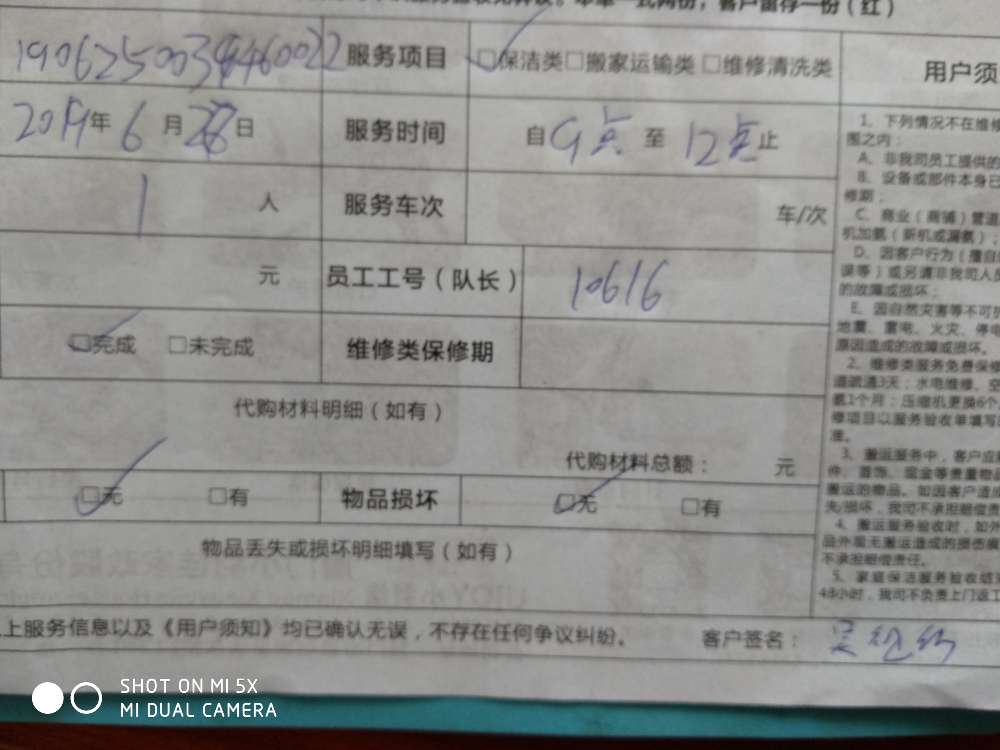 190625003 服务项目 □保洁类□搬家运输类 □维修清洗类
2019年6月28日 服务时间 自9点至12点止
1人 服务车次 车/次
元 员工工号（队长） 10616
□完成 □未完成 维修类保修期
代购材料明细（如有）
代购材料总额： 元
□无 □有 物品损坏 □无 □有
物品丢失或损坏明细填写（如有）
上服务信息以及《用户须知》均已确认无误，不存在任何争议纠纷。 客户签名：
用户须
1、下列情况不在维修
围之内：
A、非我司员工提供的
B、设备或部件本身已
修期；
C、商业（商铺）管道
机加氨（新机或漏氨）；
D、因客户行为（擅自
误等）或另请非我司人
的故障或损坏；
E、因自然灾害等不可
地震、雷电、火灾、停电
原因造成的故障或损坏。
2、维修类服务免费保修
道疏通3天；水电维修、空
氨1个月；压缩机更换6个
修项目以服务验收单填写
准。
3、搬运服务中，客户应
件、首饰、现金等贵重物
搬运的物品。如因客户造
失/损坏，我司不承担赔偿责
4、搬运服务验收时，如外
品外观无搬运造成的损伤痕
不承担赔偿责任。
5、家庭保洁服务验收结
48小时，我司不负责上门返工
SHOT ON MI 5X
MI DUAL CAMERA